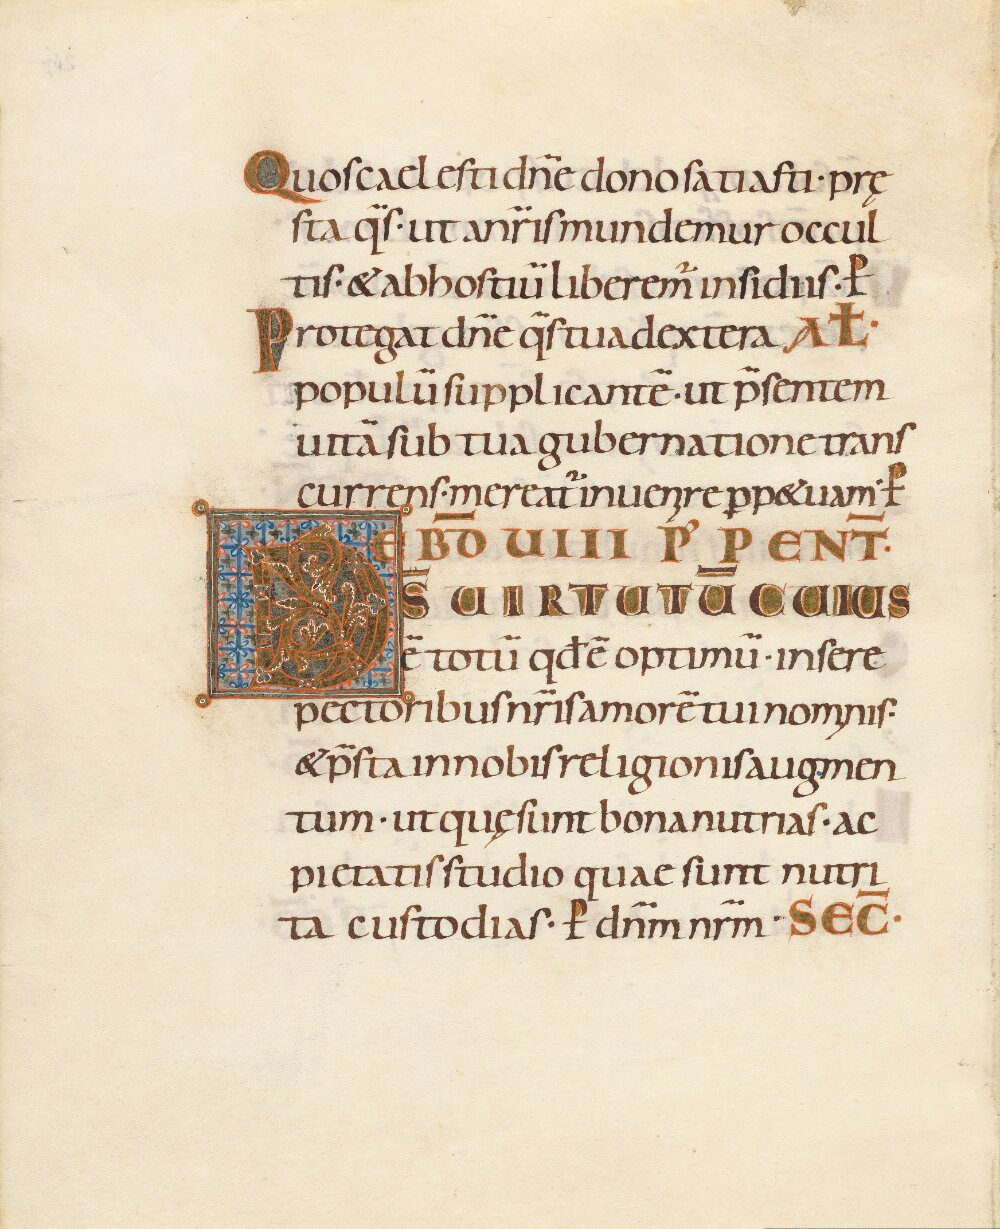 Quos caelesti dn̄e dono satiasti· prę
sta q̄s· ut a nr̄is mundemur occul
tis· & ab hostiū liberem̄ insidiis· P̱
Protegat dn̄e q̄s tua dextera AŁ·
populū supplicantē· ut p̄sentem
uitā sub tua gubernatione trans
currens· mereat̄ inuenire pp&uam· P̱
EBD̄ UIIII P' P̱ PENT̄·
DS̄ UIRTUTŪ CUIUS
ē totū qđē optimū· insere
pectoribus nr̄is amorē tui nominis·
& p̄sta in nobis religionis augmen
tum· ut quę sunt bona nutrias· ac
pietatis studio quae sunt nutri
ta custodias· P̱ dn̄m nr̄m· SEC̄·